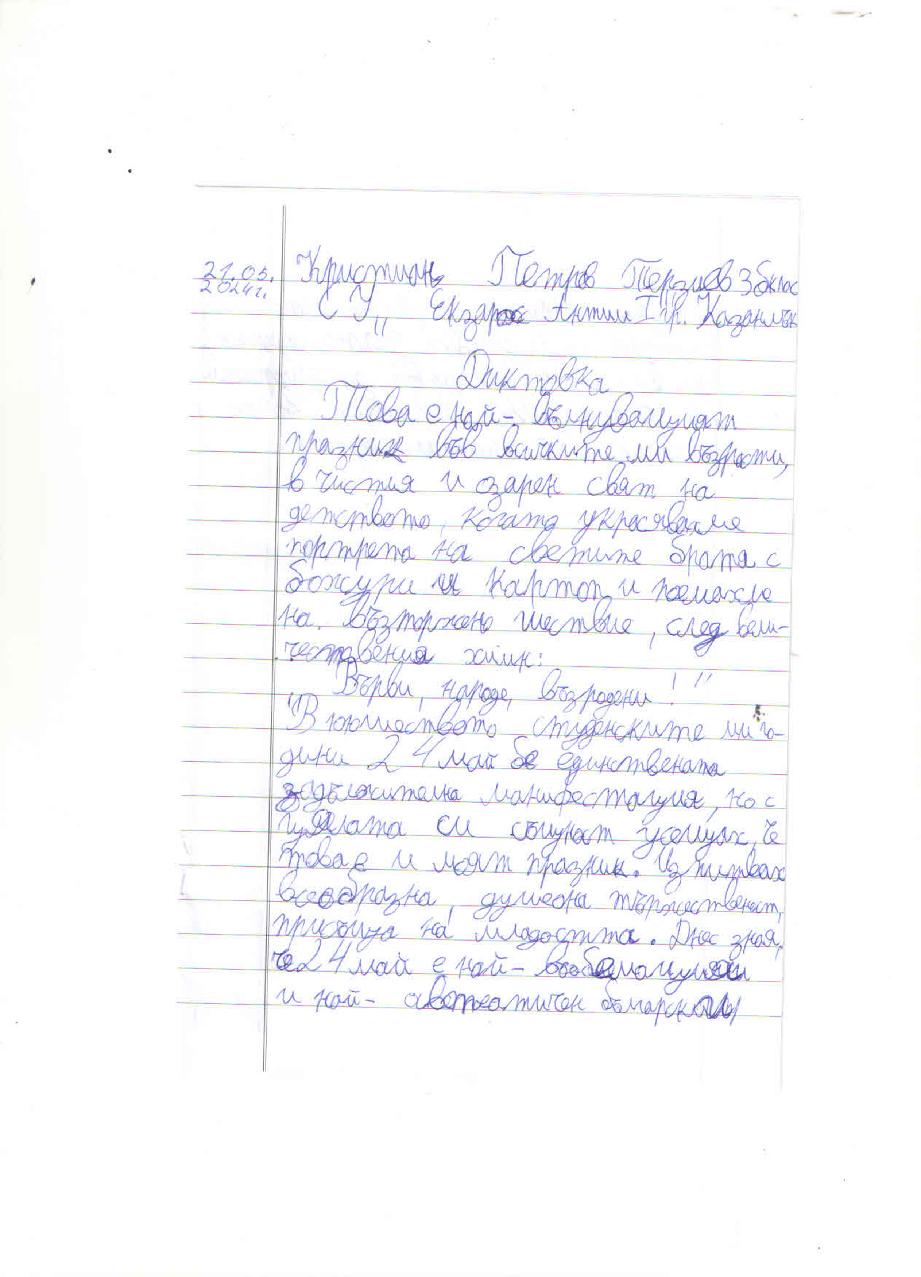 21.05. Кристиян Петров Терзиев 3 б клас
2024г. СУ „ Екзарх Антим I гр. Казанлък
Диктовка
Това е най- вълнуващият
празник във всичките ми възрасти,
в чистия и озарен свят на
детството, когато украсявахме
портрета на светите братя с
божури и картоп и поемахме
на възторжено шествие, след вели-
чествения химн:
Върви, народе, възродени! "
"В юношеството студенските ми го-
дини 24 май бе единствената
задължителна манифестация, но с
цялата си същност усещах, че
това е и моят празник. Изпитвах
всеобразна, душевна тържественост,
присъща на младостта. Днес зная,
че 24 май е най-
и най- автентичен